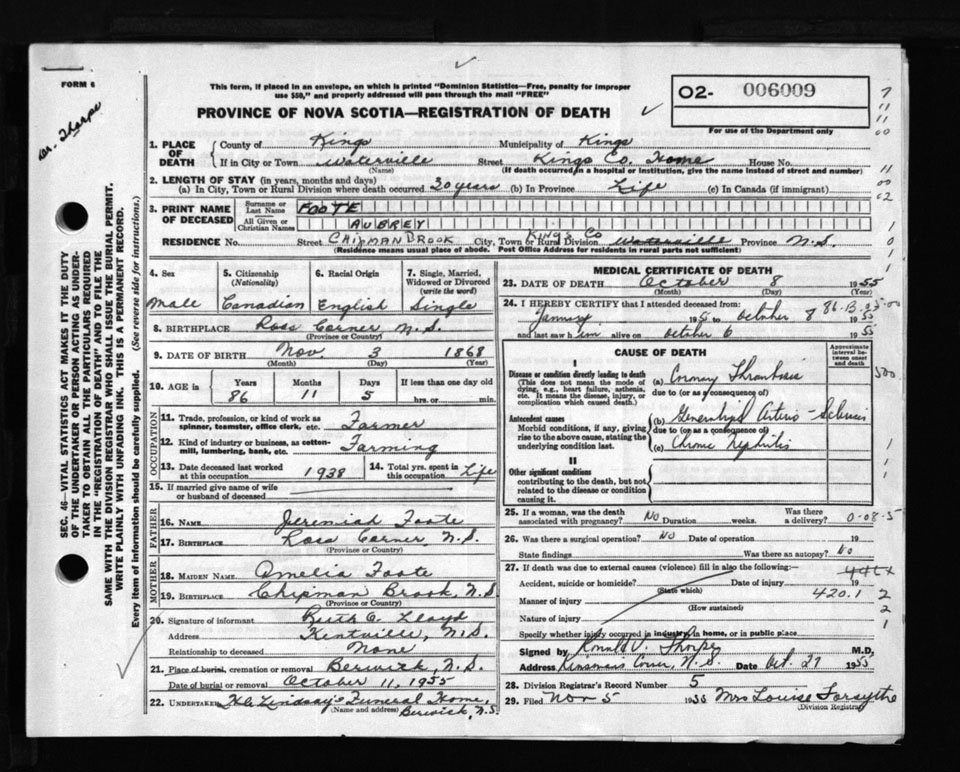 FORM 6
This form, if placed in an envelope, on which is printed "Dominion Statistics—Free, penalty for improper
use $50," and properly addressed will pass through the mail "FREE"
PROVINCE OF NOVA SCOTIA—REGISTRATION OF DEATH
O2- 006009
For use of the Department only
Dr. Thorpe
SEC. 46—VITAL STATISTICS ACT MAKES IT THE DUTY
OF THE UNDERTAKER OR PERSON ACTING AS UNDER-
TAKER TO OBTAIN ALL THE PARTICULARS REQUIRED
IN THE "REGISTRATION OF DEATH" AND TO FILE THE
SAME WITH THE DIVISION REGISTRAR WHO SHALL ISSUE THE BURIAL PERMIT.
WRITE PLAINLY WITH UNFADING INK. THIS IS A PERMANENT RECORD.
Every item of information should be carefully supplied. (See reverse side for instructions.)
1. PLACE OF DEATH
County of Kings Municipality of Kings
If in City or Town Waterville Street Kings Co. Home House No.
(Name) (If death occurred in a hospital or institution, give the name instead of street and number)
2. LENGTH OF STAY (in years, months and days)
(a) In City, Town or Rural Division where death occurred 20 years (b) In Province Life (c) In Canada (if immigrant)
3. PRINT NAME OF DECEASED
Surname or Last Name FOOTE
All Given or Christian Names AUBREY
RESIDENCE No. Street CHIPMAN BROOK City, Town or Rural Division King's Co Waterville Province N.S.
(Residence means usual place of abode. Post Office Address for residents in rural parts not sufficient)
4. Sex Male
5. Citizenship (Nationality) Canadian
6. Racial Origin English
7. Single, Married, Widowed or Divorced (write the word) Single
8. BIRTHPLACE Ross Corner N.S.
(Province or Country)
9. DATE OF BIRTH Nov 3 1868
(Month) (Day) (Year)
10. AGE IS Years 86 Months 11 Days 5 If less than one day old hrs. or min.
OCCUPATION
11. Trade, profession, or kind of work as spinner, teamster, office clerk, etc. Farmer
12. Kind of industry or business, as cotton-mill, lumbering, bank, etc. Farming
13. Date deceased last worked at this occupation 1938
14. Total yrs. spent in this occupation Life
15. If married give name of wife or husband of deceased
FATHER
16. NAME Jeremiah Foote
17. BIRTHPLACE Ross Corner, N.S.
(Province or Country)
MOTHER
18. MAIDEN NAME Amelia Foote
19. BIRTHPLACE Chipman Brook, N.S.
(Province or Country)
20. Signature of informant Ruth C. Lloyd
Address Kentville, N.S.
Relationship to deceased None
21. Place of burial, cremation or removal Berwick, N.S.
Date of burial or removal October 11, 1955
22. UNDERTAKER Lindsay's Funeral Home,
(Name and address) Berwick, N.S.
MEDICAL CERTIFICATE OF DEATH
23. DATE OF DEATH October 8 1955
(Month) (Day) (Year)
24. I HEREBY CERTIFY that I attended deceased from:
January 195 to October 8 1955
and last saw him alive on October 6 1955
CAUSE OF DEATH
Approximate interval between onset and death
I
Disease or condition directly leading to death
(This does not mean the mode of dying, e.g., heart failure, asthenia, etc. It means the disease, injury, or complication which caused death.)
(a) Coronary Thrombosis
due to (or as a consequence of)
Antecedent causes
Morbid conditions, if any, giving rise to the above cause, stating the underlying condition last.
(b) Generalized Arterio-Sclerosis
due to (or as a consequence of)
(c) Chronic Nephritis
II
Other significant conditions
contributing to the death, but not related to the disease or condition causing it.
25. If a woman, was the death associated with pregnancy? No Duration weeks. Was there a delivery?
0-08-5
26. Was there a surgical operation? No Date of operation 19
State findings Was there an autopsy? No
27. If death was due to external causes (violence) fill in also the following:—
Accident, suicide or homicide? Date of injury 19
(State which)
420.1
Manner of injury
(How sustained)
Nature of injury
Specify whether injury occurred in industry, in home, or in public place
Signed by Ronald V. Thorpe M.D.
Address Kinsman's Corner, N.S. Date Oct. 27 1955
28. Division Registrar's Record Number 5
29. Filed Nov 5 1955 Mrs Louise Forsythe
(Division Registrar)